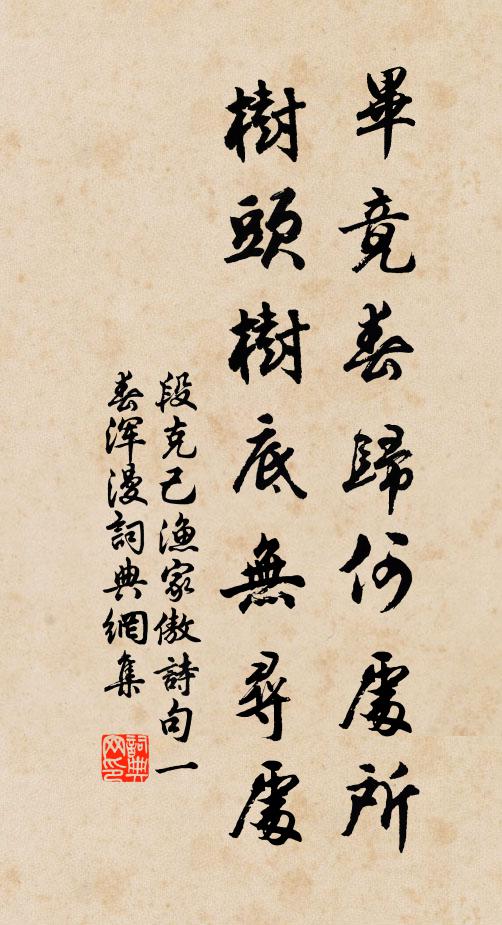 畢竟春歸何處所
樹頭樹底無尋處
段克己漁家傲詩句一
春渾漫詞典網集
詞典网印